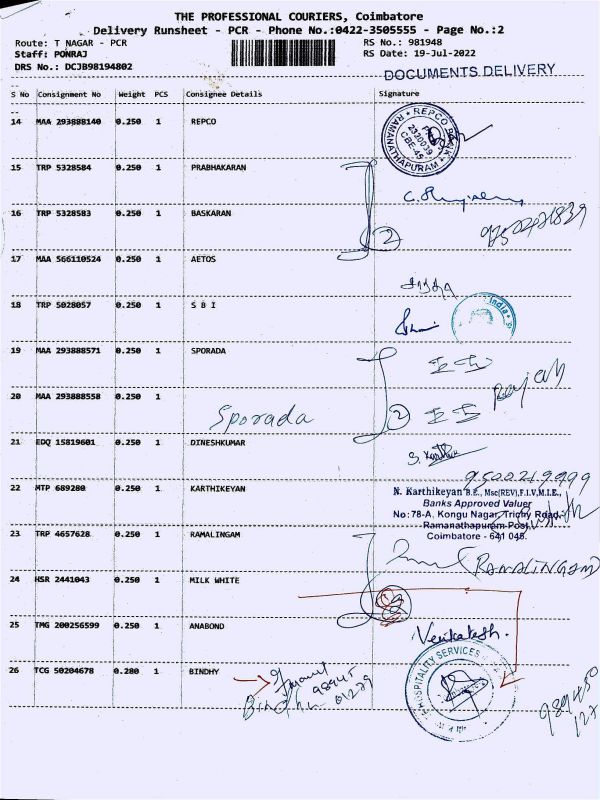 THE PROFESSIONAL COURIERS, Coimbatore
Delivery Runsheet - PCR - Phone No.:0422-3505555 - Page No.:2
Route: T NAGAR - PCR
RS No.: 981948
Staff: PONRAJ
RS Date: 19-Jul-2022
DRS No.: DCJB98194802
DOCUMENTS DELIVERY
S No Consignment No Weight PCS Consignee Details Signature
14 MAA 293888140 0.250 1 REPCO
REPCO BANK
2320039
CBE-45
RAMANATHAPURAM
15 TRP 5328584 0.250 1 PRABHAKARAN
16 TRP 5328583 0.250 1 BASKARAN
2
17 MAA 566110524 0.250 1 AETOS
18 TRP 5028057 0.250 1 S B I
India
19 MAA 293888571 0.250 1 SPORADA
20 MAA 293888558 0.250 1
Sporada
2
Rajah
21 EDQ 15819601 0.250 1 DINESHKUMAR
S. Karthik
9500219999
22 MTP 689280 0.250 1 KARTHIKEYAN
N. Karthikeyan B.E., Msc(REV),F.I.V,M.I.E.,
Banks Approved Valuer
No: 78-A, Kongu Nagar, Trichy Road,
Ramanathapuram Post,
Coimbatore - 641 045.
23 TRP 4657628 0.250 1 RAMALINGAM
RAMALINGAM
24 HSR 2441043 0.250 1 MILK WHITE
25 TMG 200256599 0.250 1 ANABOND
Venkatesh.
26 TCG 50204678 0.280 1 BINDHY
98945
01279
HOSPITALITY SERVICES